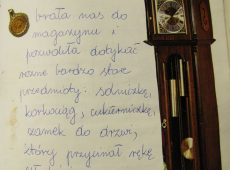 brała nas do
magazynu i
pozwoliła dotykać
różne bardzo stare
przedmioty: solniczkę,
korkociąg, cukierniczkę,
zamek do drzwi,
który przycinał rękę